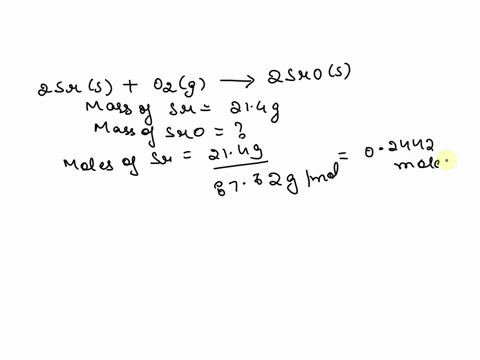 2Sr(s) + O2(g) ⟶ 2SrO(s)
Mass of Sr = 21.4g
Mass of SrO = ?
Moles of Sr = 21.4g / 87.62g/mol = 0.2442 mole.